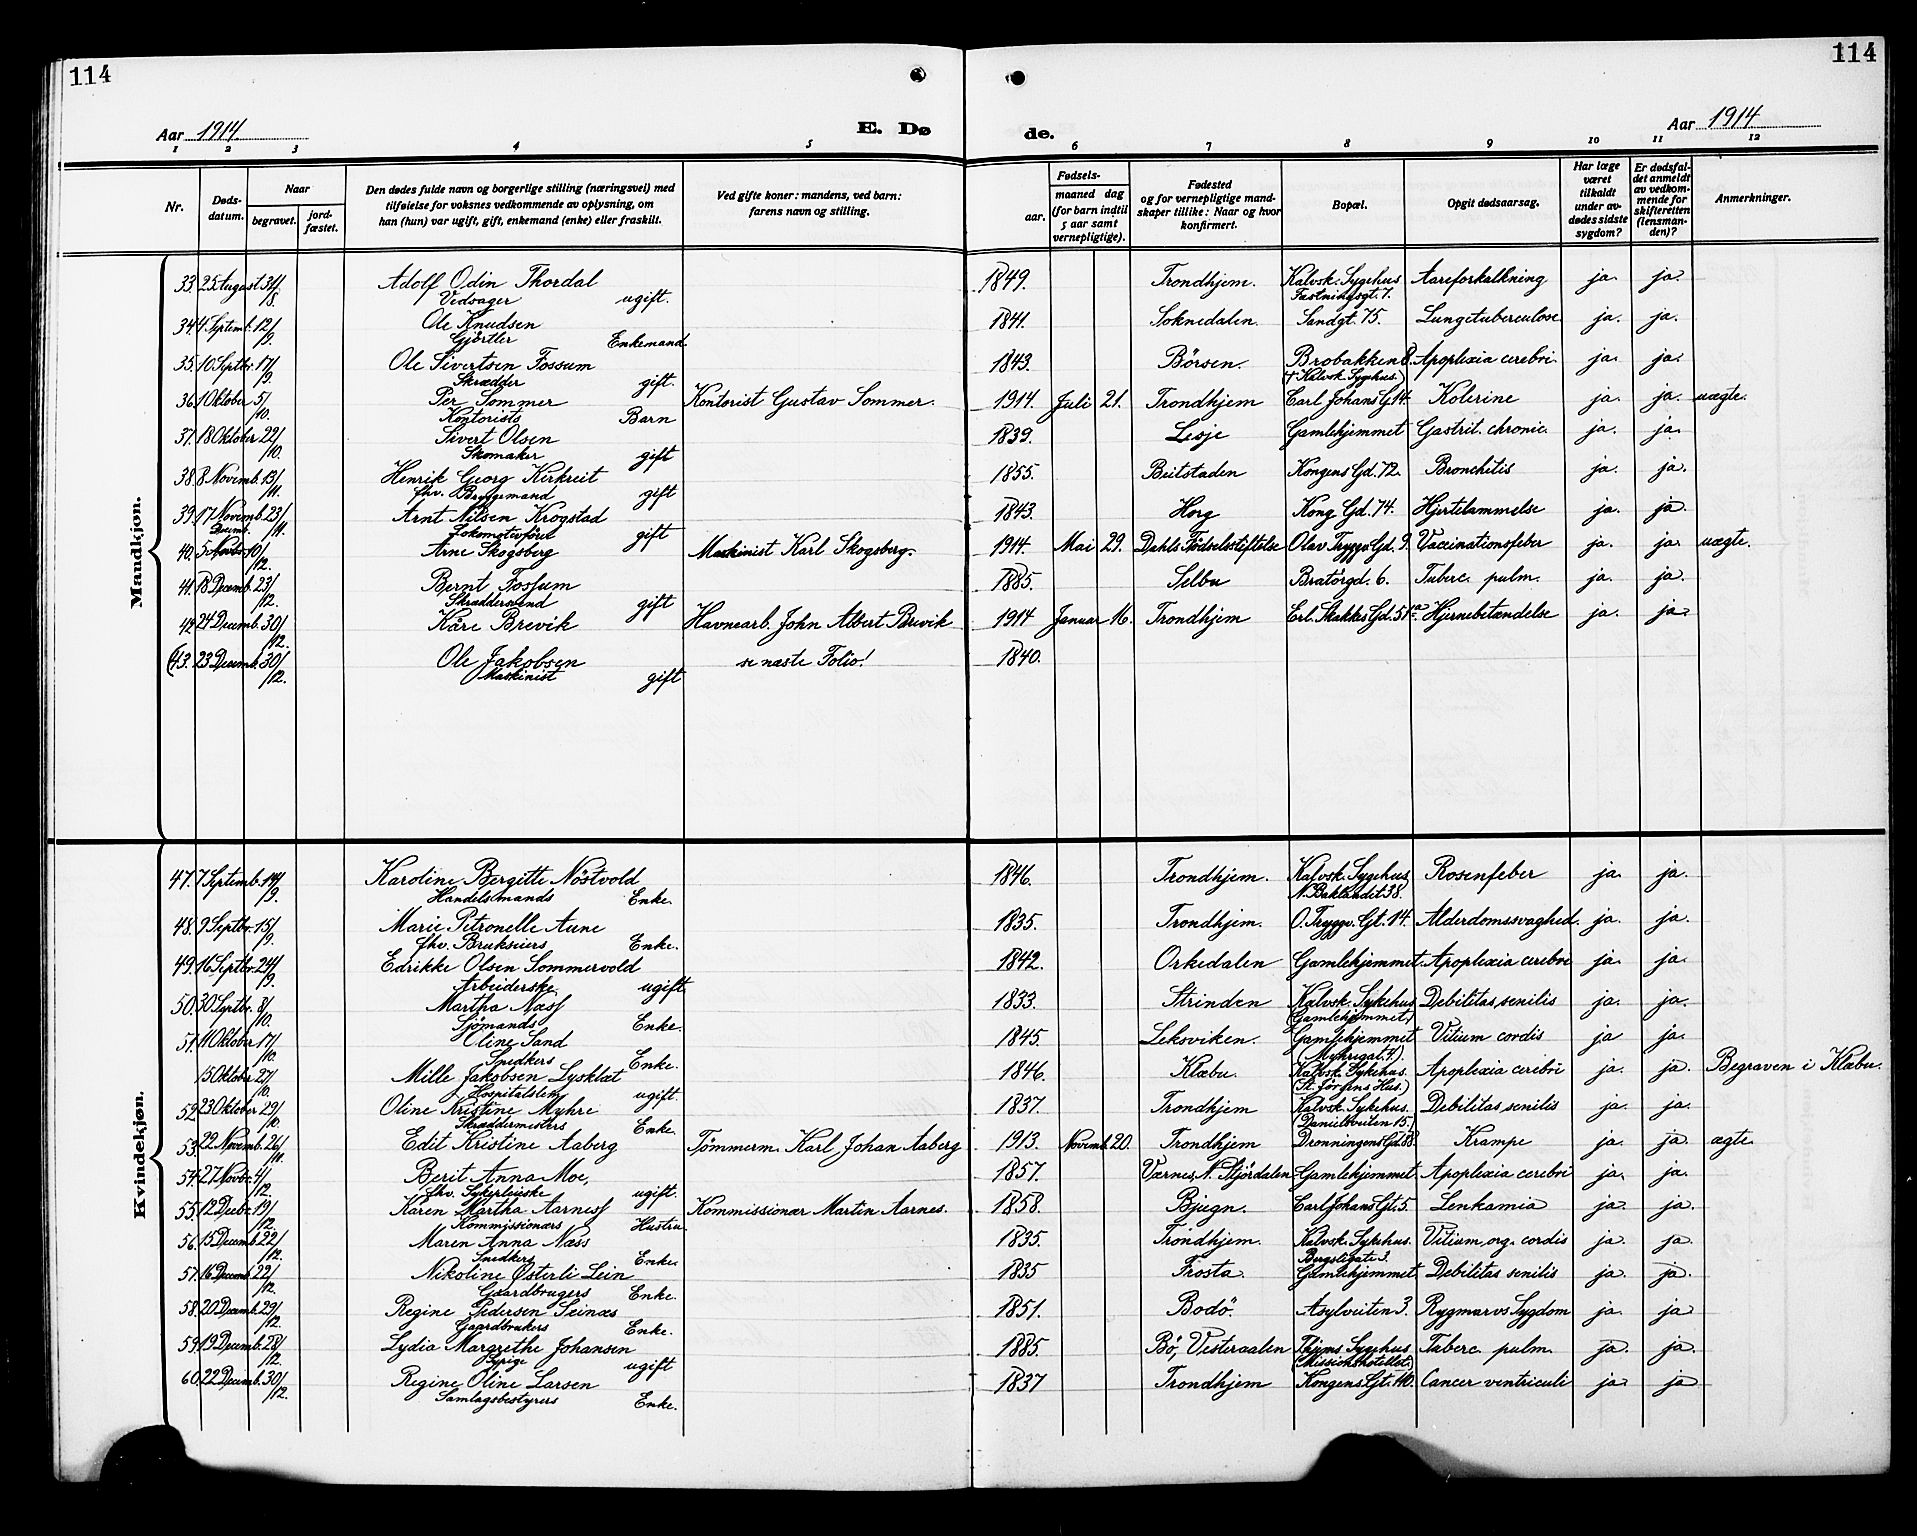 114
114
Aar 1914.
E. Dø
de.
Aar 1914
1 2 3 4 5 6 7 8 9 10 11 12
Nr.
Døds-
datum.
Naar
begravet.
jord-
fæstet.
Den dødes fulde navn og borgerlige stilling (næringsvei) med
tilføielse for voksnes vedkommende av oplysning, om
han (hun) var ugift, gift, enkemand (enke) eller fraskilt.
Ved gifte koner: mandens, ved barn:
farens navn og stilling.
Fødsels-
aar.
maaned dag
(for barn indtil
5 aar samt
vernepligtige).
Fødested
og for vernepligtige mand-
skaper tillike: Naar og hvor
konfirmert.
Bopæl.
Opgit dødsaarsag.
Har læge
været
tilkaldt
under av-
dødes sidste
sygdom?
Er dødsfal-
det anmeldt
av vedkom-
mende for
skifteretten
(lensman-
den)?
Anmerkninger.
Mandkjøn.
33. 25 August 31/8. Adolf Odin Thordal 1849. Trondhjem. Kalvsk. Sygehus Aareforkalkning ja. ja.
Vedsager ugift. Fæstningsgt. 7.
34. 4 Septemb. 12/9. Ole Knudsen 1841. Soknedalen. Sandgt. 75. Lungetuberculose ja. ja.
Gjørtler Enkemand.
35. 10 Septbr. 17/9. Ole Sivertsen Fossum 1843. Börsen. Brobakken 8. Apoplexia cerebri ja. ja.
Skrædder gift. († Kalvsk. Sygehus.)
36. 1 Oktober 5/10. Per Sommer Kontorist Gustav Sommer. 1914 Juli 21. Trondhjem Carl Johans G. 14. Kolerine ja. ja. uægte.
Kontorists Barn
37. 18 Oktober 22/10. Sivert Olsen 1839. Lesje Gamlehjemmet Gastrit. chronic. ja. ja.
Skomaker gift
38. 8 Novemb. 13/11. Henrik Georg Kirkreit 1855. Beitstaden Kongens Gd. 72. Bronchitis ja. ja.
fhv. Bryggemand gift
39. 17 Novemb. 23/11. Arnt Nilsen Krogstad 1843. Horg Kong. Gd. 74. Hjertelammelse ja. ja
Lokomotivförer gift
Decemb.
40. 5 Novbr. 10/12. Arne Skogsberg Maskinist Karl Skogsberg. 1914. Mai 29. Dahls Födselsstiftelse Olav Tryggv. Gd. 9. Vaccinationsfeber ja. ja uægte.
41. 18 Decemb. 23/12. Bernt Fossum 1885. Selbu Bratörgd. 6. Tuberc. pulm. ja. ja
Skræddersvend gift
42 24 Decemb. 30/12. Kåre Brevik Havnearb. John Albert Brevik 1914 Januar 16. Trondhjem Erl. Skakkes Gd. 51 Hjernebetændelse ja. ja
(43. 23 Decemb. 30/12. Ole Jakobsen se næste Folio! 1840.
Maskinist gift
Kvindekjøn.
47. 7 Septemb. 14/9. Karoline Bergitte Nöstvold 1846. Trondhjem. Kalvsk. Sygehus Rosenfeber ja. ja.
Handelsmands Enke. N. Baklandet 38.
48. 9 Septbr. 15/9. Marie Petronelle Aune 1835. Trondhjem. O. Tryggv. Gt. 14. Alderdomssvaghed. ja. ja.
fhv. Brukseiers Enke.
49. 16 Septbr. 24/9. Edrikke Olsen Sommervold 1842. Orkedalen Gamlehjemmet. Apoplexia cerebri ja. ja
Arbeiderske. ugift
50. 30 Septbr. 8/10. Martha Næss 1833. Strinden Kalvsk. Sykehus Debilitas senilis ja. ja.
Sjömands Enke. (Gamlehjemmet)
51. 11 Oktober 17/10. Oline Sand 1845 Leksviken. Gamlehjemmet Vitium cordis ja ja.
Snedkers Enke.
15 Oktober 27/10. Mille Jakobsen Lysklæt 1846. Klæbu. Kalvsk. Sykehus. Apoplexia cerebri ja. ja. Begraven i Klæbu.
Hospitalslem ugift. (St. Jørgens Hus.)
52. 23 Oktober 29/10. Oline Kristine Myhre 1837. Trondhjem Kalvsk. Sykehus. Debilitas senilis ja. ja.
Skræddermesters Enke. Danielsveiten 15.)
53. 22 Novemb. 26/11. Edit Kristine Aaberg Tömmerm. Karl Johan Aaberg 1913 Novemb. 20. Trondhjem Dronningens Gd. 88. Krampe ja. ja ægte.
54. 27 Novbr. 4/12. Berit Anna Moe, 1857. Værnes, N. Stjördalen Gamlehjemmet. Apoplexia cerebri ja. ja.
fhv. Sykepleierske ugift.
55. 12 Decbr. 19/12. Karen Martha Aarness Kommissionær Martin Aarnes. 1858. Bjugn. Carl Johans Gt. 5. Leukæmia ja. ja.
Kommissionærs Hustru.
56. 15 Decemb. 22/12. Maren Anna Næss 1835. Trondhjem. Kalvsk. Sykehus. Vitium org. cordis ja. ja.
Snedkers Enke.
57. 16 Decemb. 22/12. Nikoline Østerli Lein 1835 Frosta. Gamlehjemmet. Debilitas senilis ja. ja.
Gaardbrugers Enke.
58. 20 Decemb. 29/12. Regine Pedersen Seinæs 1851. Bodö. Asylveiten 3. Rygmarvs Sygdom ja. ja
Gaardbrukers Enke.
59. 19 Decemb. 28/12. Lydia Margrethe Johansen 1885 Bö, Vesteraalen Thjems Sygehus Tuberc. pulm. ja. ja.
Syrige ugift (Missionshotellet)
60. 22 Decemb. 30/12. Regine Oline Larsen 1837 Trondhjem Kongens Gt. 40. Cancer ventriculi ja ja
Samlagsbestyrers Enke.